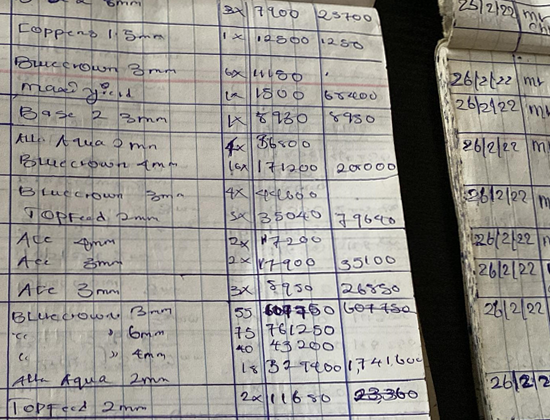 3mm 3x 7900 23700
Coppens 1.5mm 1x 12500 1250
Bluecrown 3mm 6x 11150
Maxi yield 1x 1500 68400
Base 2 3mm 1x 8950 8950
Alla Aqua 2mm 4x 36800
Bluecrown 4mm 16x 171200 208000
Bluecrown 3mm 4x 44600
Topfeed 2mm 3x 35040 79640
Acc 4mm 2x 17200
Acc 3mm 2x 17900 35100
Acc 3mm 3x 8950 26850
Bluecrown 3mm 55 607750 607750
" " 6mm 75 761250
" " 4mm 40 43200
Alla Aqua 2mm 18 327400 1741600
Topfeed 2mm 2x 11680 23,360
25/2/22
26/2/22 mr
26/2/22 m
26/2/22 m
26/2/22
26/2/22
26/2/22
26/2/22
26/2/2